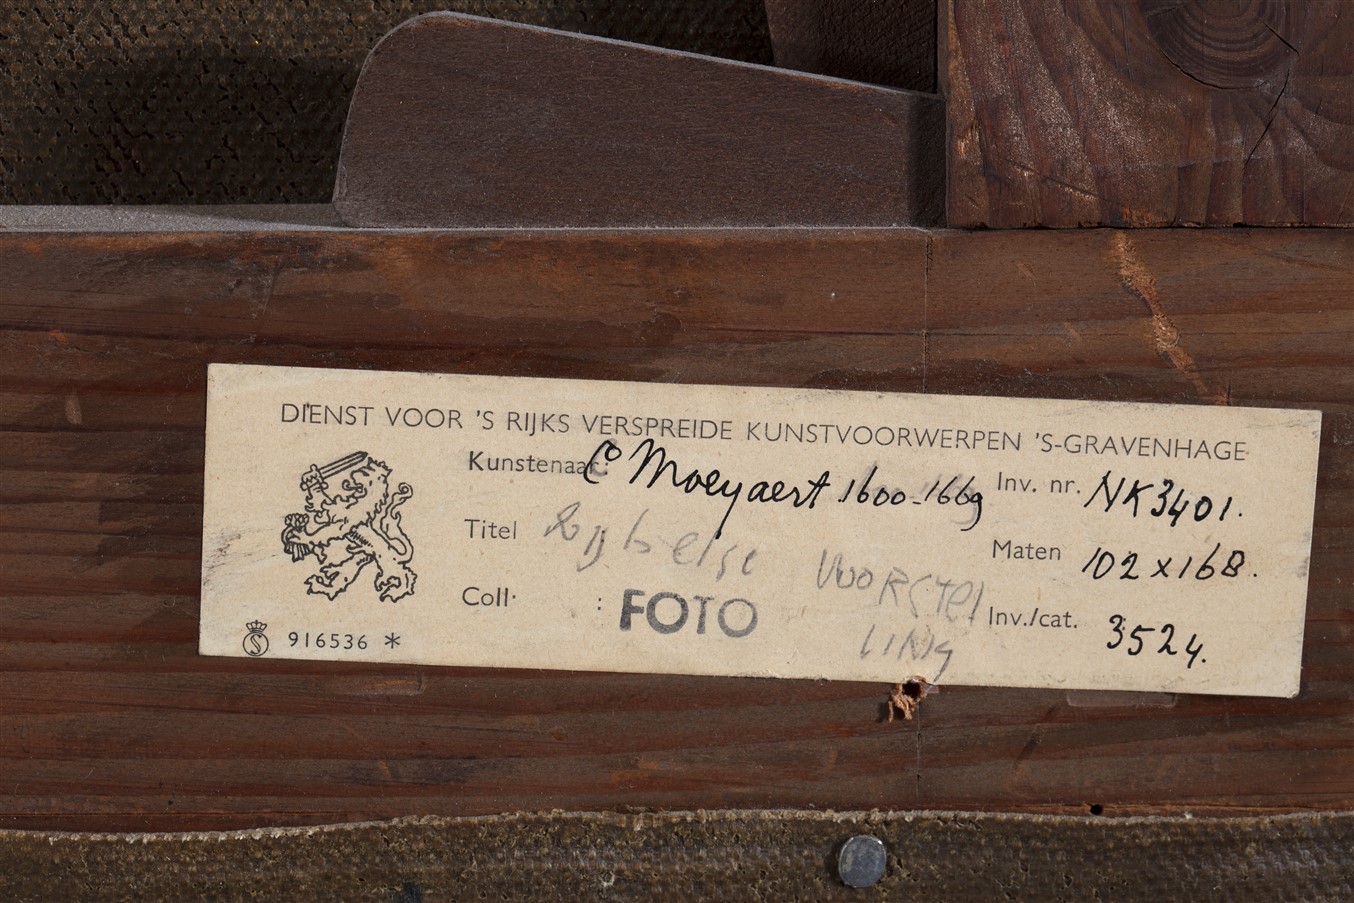 DIENST VOOR 'S RIJKS VERSPREIDE KUNSTVOORWERPEN 'S-GRAVENHAGE
Kunstenaar: C Moeyaert 1600-1669 Inv. nr. NK3401.
Titel Bijbelse VOORSTEL Maten 102 x 168.
LING
Coll. : FOTO Inv./cat. 3524.
S 916536 *